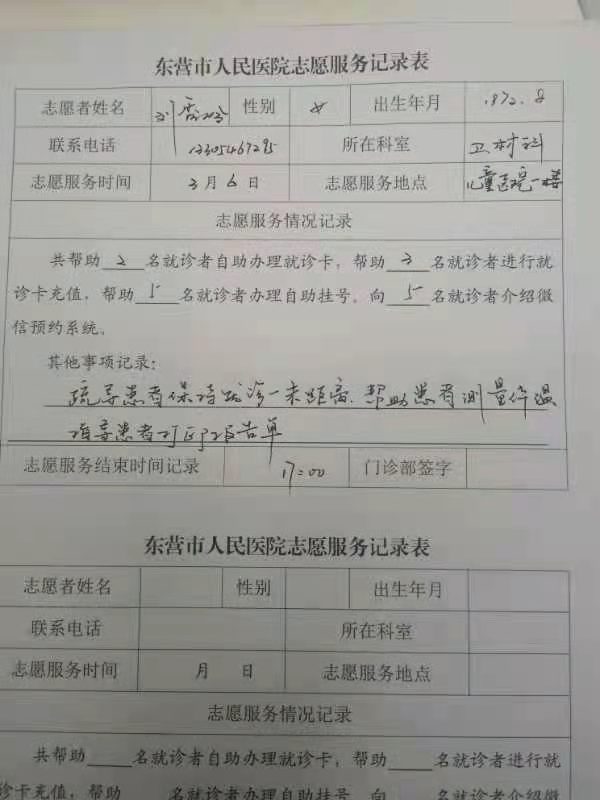 东营市人民医院志愿服务记录表
志愿者姓名 刘 性别 女 出生年月 1972.8
联系电话 13305467295 所在科室 卫材科
志愿服务时间 3月6日 志愿服务地点 儿童医院一楼
志愿服务情况记录
共帮助2名就诊者自助办理就诊卡，帮助3名就诊者进行就
诊卡充值，帮助5名就诊者办理自助挂号。向5名就诊者介绍微
信预约系统。
其他事项记录：
疏导患者保持就诊一米距离.帮助患者测量体温
指导患者打印报告单
志愿服务结束时间记录 17:00 门诊部签字
东营市人民医院志愿服务记录表
志愿者姓名 性别 出生年月
联系电话 所在科室
志愿服务时间 月 日 志愿服务地点
志愿服务情况记录
共帮助____名就诊者自助办理就诊卡，帮助____名就诊者进行就
诊卡充值，帮助____名就诊者办理自助挂号。向____名就诊者介绍微